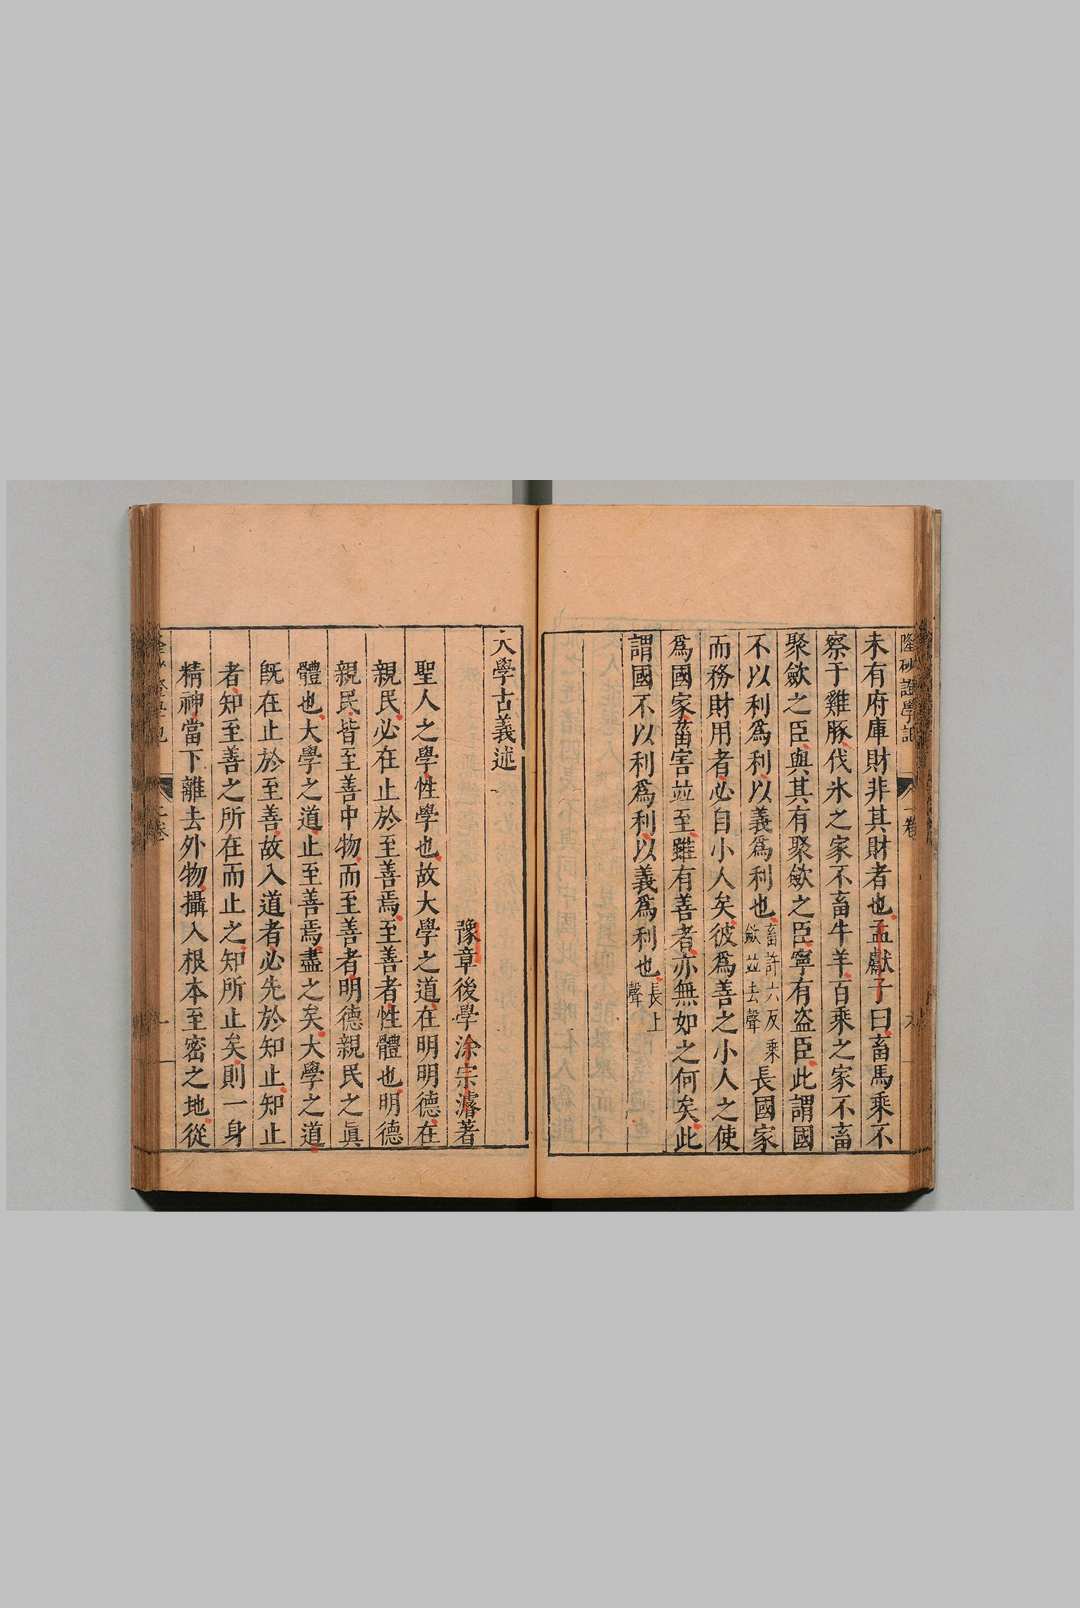 未有府庫財非其財者也孟獻子曰畜馬乘不
察于雞豚伐氷之家不畜牛羊百乘之家不畜
聚斂之臣與其有聚斂之臣寧有盗臣此謂國
不以利爲利以義爲利也畜許六反乘斂並去聲長國家
而務財用者必自小人矣彼爲善之小人之使
爲國家菑害並至雖有善者亦無如之何矣此
謂國不以利爲利以義爲利也長上聲
大學古義述
豫章後學涂宗濬著
聖人之學性學也故大學之道在明明德在
親民必在止於至善焉至善者性體也明德
親民皆至善中物而至善者明德親民之眞
體也大學之道止至善焉盡之矣大學之道
旣在止於至善故入道者必先於知止知止
者知至善之所在而止之知所止矣則一身
精神當下離去外物攝入根本至密之地從